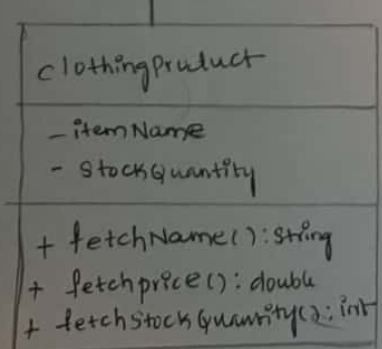 clothingProduct
- itemName
- StockQuantity
+ fetchName():String
+ fetchprice(): double
+ fetchStockQuantity(): int